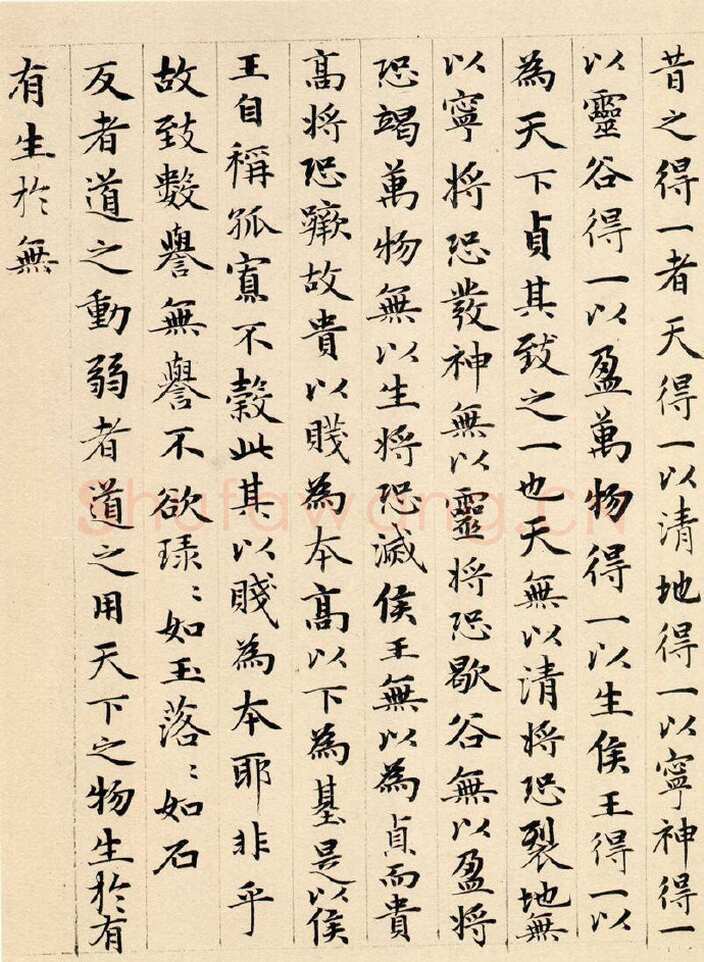 昔之得一者天得一以清地得一以寧神得一
以靈谷得一以盈萬物得一以生侯王得一以
為天下貞其致之一也天無以清將恐裂地無
以寧將恐發神無以靈將恐歇谷無以盈將
恐竭萬物無以生將恐滅侯王無以為貞而貴
高將恐蹶故貴以賤為本高以下為基是以侯
王自稱孤寡不穀此其以賤為本耶非乎
故致數譽無譽不欲琭〻如玉落〻如石
反者道之動弱者道之用天下之物生於有
有生於無
Shufawang.CN